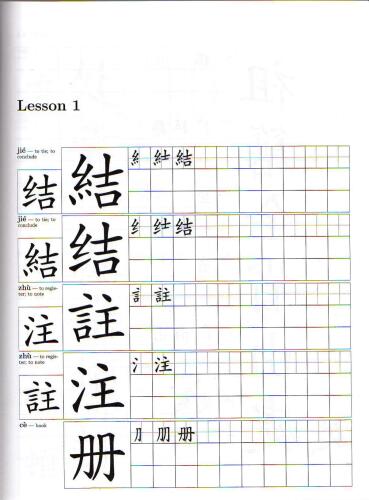 Lesson 1
jié — to tie; to
conclude
结
結
纟 紩 結
jié — to tie; to
conclude
結
结
纟 结 结
zhù — to regis-
ter; to note
注
註
訁 註
zhù — to regis-
ter; to note
註
注
氵 注
cè — book
册
⺆ 册 册